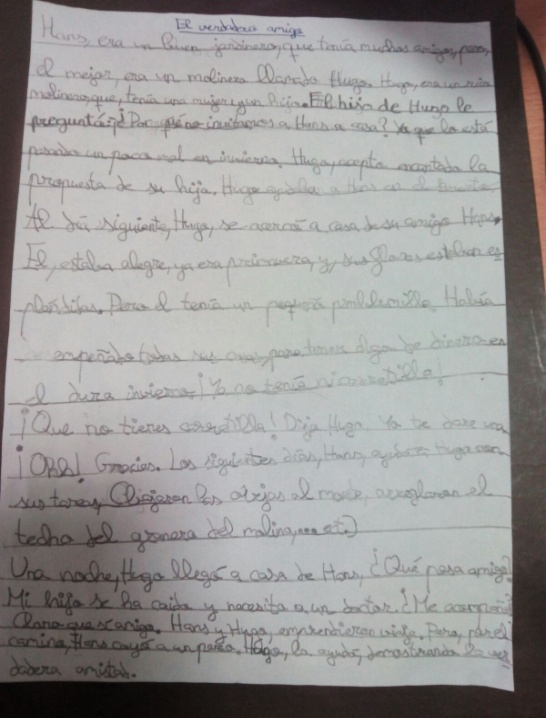 El verdadero amigo
Hans, era un buen jardinero, que tenía muchos amigos, pero,
el mejor, era un molinero llamado Hugo. Hugo, era un rico
molinero, que, tenía una mujer y un hijo. El hijo de Hugo le
preguntó: ¿Por qué no invitamos a Hans a casa? Ya que lo está
pasando un poco mal en invierno. Hugo, acepta encantado la
propuesta de su hijo. Hugo ayuda a Hans en el huerto.
Al día siguiente, Hugo, se acercó a casa de su amigo Hans.
Él, estaba alegre, ya era primavera, y, sus flores estaban es
pléndidas. Pero él tenía un pequeño problemilla. Había
empeñado todas sus cosas, para tener algo de dinero en
el duro invierno ¡Ya no tenía ni carretilla!
¡Que no tienes carretilla! Dijo Hugo. Yo te dare una
¡Ohh! Gracias. Los siguientes días, Hans, Hugo con
sus tareas, los al monte, arreglaron el
techo del granero del molino, ... et.)
Una noche, Hugo llegó a casa de Hans, ¿Qué pasa amigo?
Mi hijo se ha caido y necesita a un doctor. ¿Me acompaña?
Claro que sí amigo. Hans y Hugo, emprendieron viaje. Pero, por el
camino, Hans cayó a un pozo. Hugo, lo ayudó, demostrando la ver
dadera amistad.